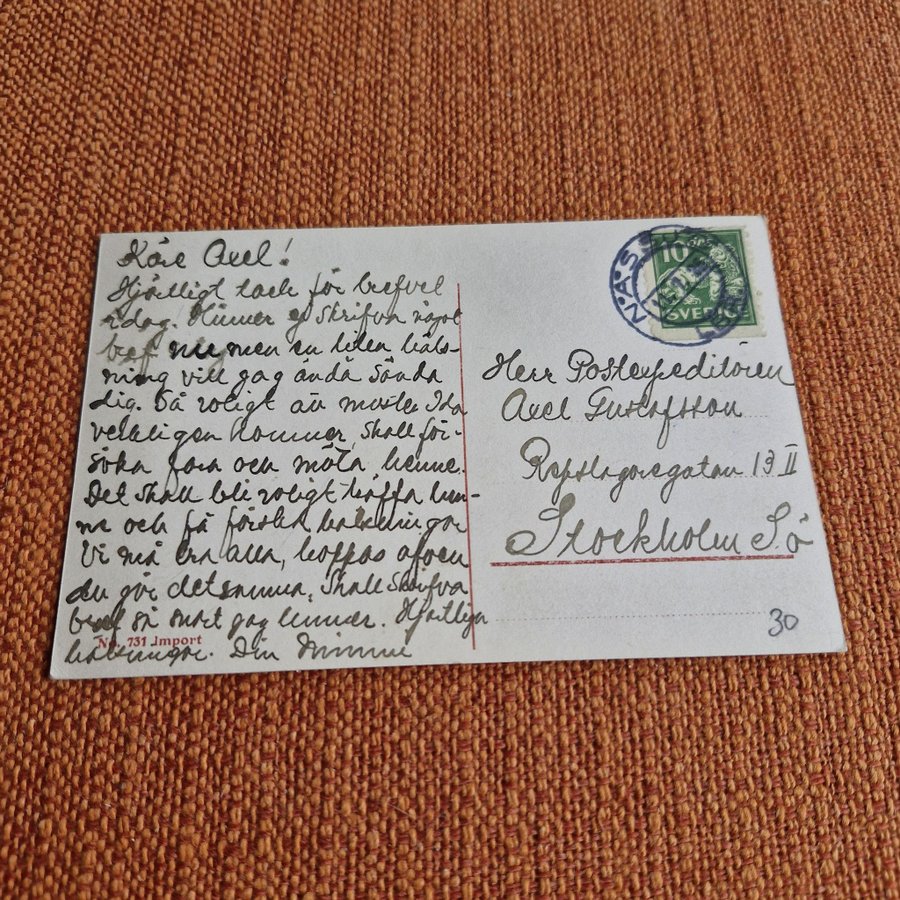 Käre Axel!
Hjärtligt tack för brefvet
idag. Hinner ej skrifva något
bref nu, men en liten häls-
ning vill jag ändå sända
dig. Så roligt att moster Ida
verkligen kommer, skall för-
söka fara och möta henne.
Det skall bli roligt träffa hen-
ne och få färska hälsningar
Vi må bra alla, hoppas äfven
du gör detsamma. Skall skrifva
bref så snart jag hinner. Hjärtliga
hälsningar. Din Mimmi
No. 731 Import
10
SVERIGE
NÄSSJÖ
Herr Postexpeditören
Axel Gustafsson
Repslagaregatan 13 II
Stockholm Sö
30